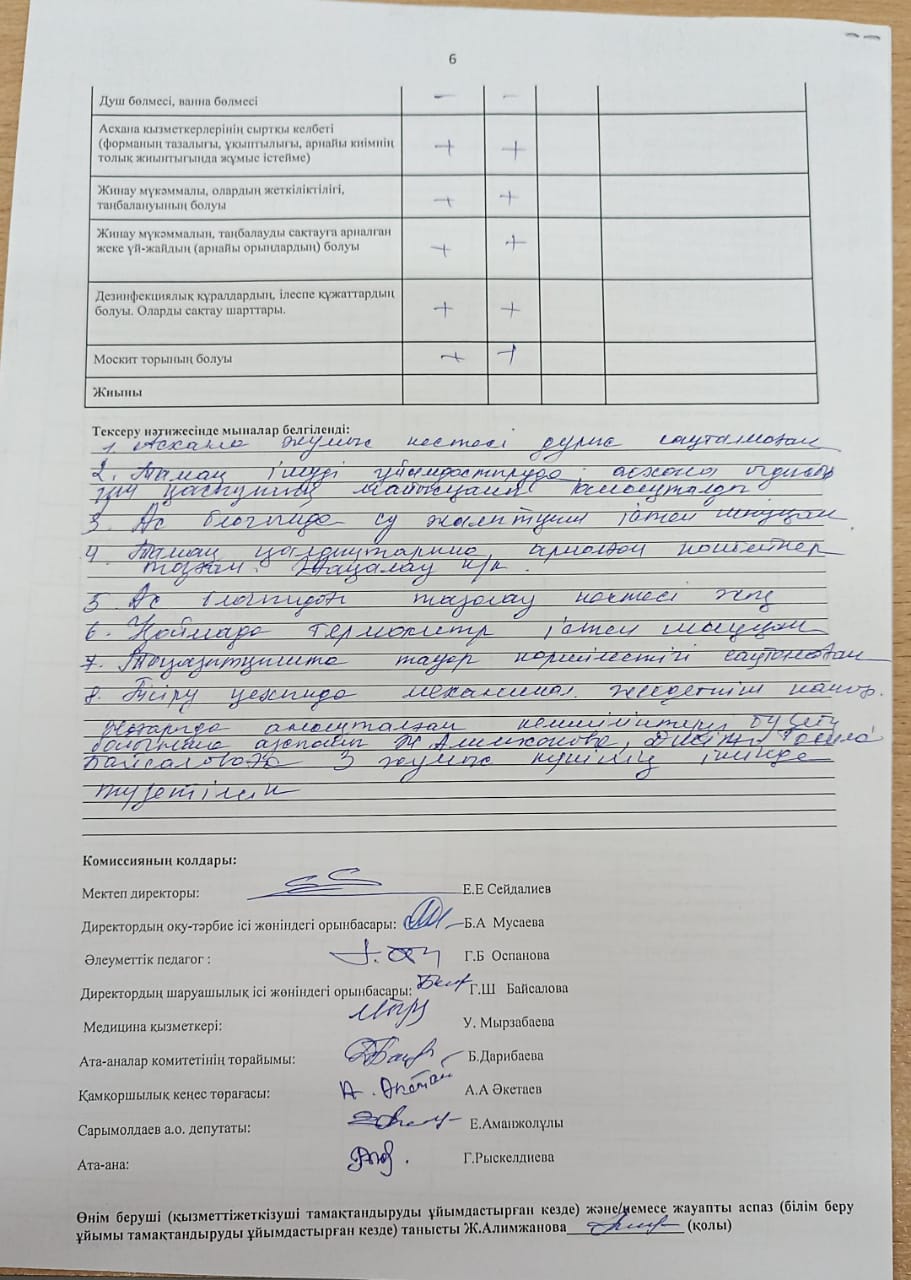 6
Душ бөлмесі, ванна бөлмесі - -
Асхана қызметкерлерінің сыртқы келбеті
(форманың тазалығы, ұқыптылығы, арнайы киімнің
толық жиынтығында жұмыс істейме) + +
Жинау мүкәммалы, олардың жеткіліктілігі,
таңбалануының болуы + +
Жинау мүкәммалын, таңбалауды сақтауға арналған
жеке үй-жайдың (арнайы орындардың) болуы + +
Дезинфекциялық құралдардың, ілеспе құжаттардың
болуы. Оларды сақтау шарттары. + +
Москит торының болуы + +
Жиыны
Тексеру нәтижесінде мыналар белгіленді:
1. Асхана жұмыс кестесі дұрыс сақталмаған
2. Тамақ ішуді ұйымдастыруда асхана ыдысы
үшін қасықтың майысқаны анықталды
3. Ас блогында су жылытқыш істен шыққан
4. Тамақ қалдықтарына арналған контейнер
тозған. Жаңалау к/к.
5. Ас блогындағы тазалау кестесі жоқ
6. Қоймада термометр істен шыққан
7. Тоңазытқышта тауар көршілестігі сақталмаған
8. Пісіру цехында механикал. желдеткіш нашар.
Жоғарыда анықталған кемшіліктерді түзету
бойынша аспазшы Ж Алимжанова,
Байсаловаға 3 жұмыс күнінің ішінде
түзетілсін
Комиссияның қолдары:
Мектеп директоры: Е.Е Сейдалиев
Директордың оқу-тәрбие ісі жөніндегі орынбасары: Б.А Мусаева
Әлеуметтік педагог : Г.Б Оспанова
Директордың шаруашылық ісі жөніндегі орынбасары: Г.Ш Байсалова
Медицина қызметкері: У. Мырзабаева
Ата-аналар комитетінің төрайымы: Б.Дарибаева
Қамқоршылық кеңес төрағасы: А. Әкетай А.А Әкетаев
Сарымолдаев а.о. депутаты: Е.Аманжолұлы
Ата-ана: Г.Рыскелдиева
Өнім беруші (қызметтіжеткізуші тамақтандыруды ұйымдастырған кезде) және/немесе жауапты аспаз (білім беру
ұйымы тамақтандыруды ұйымдастырған кезде) танысты Ж.Алимжанова (қолы)